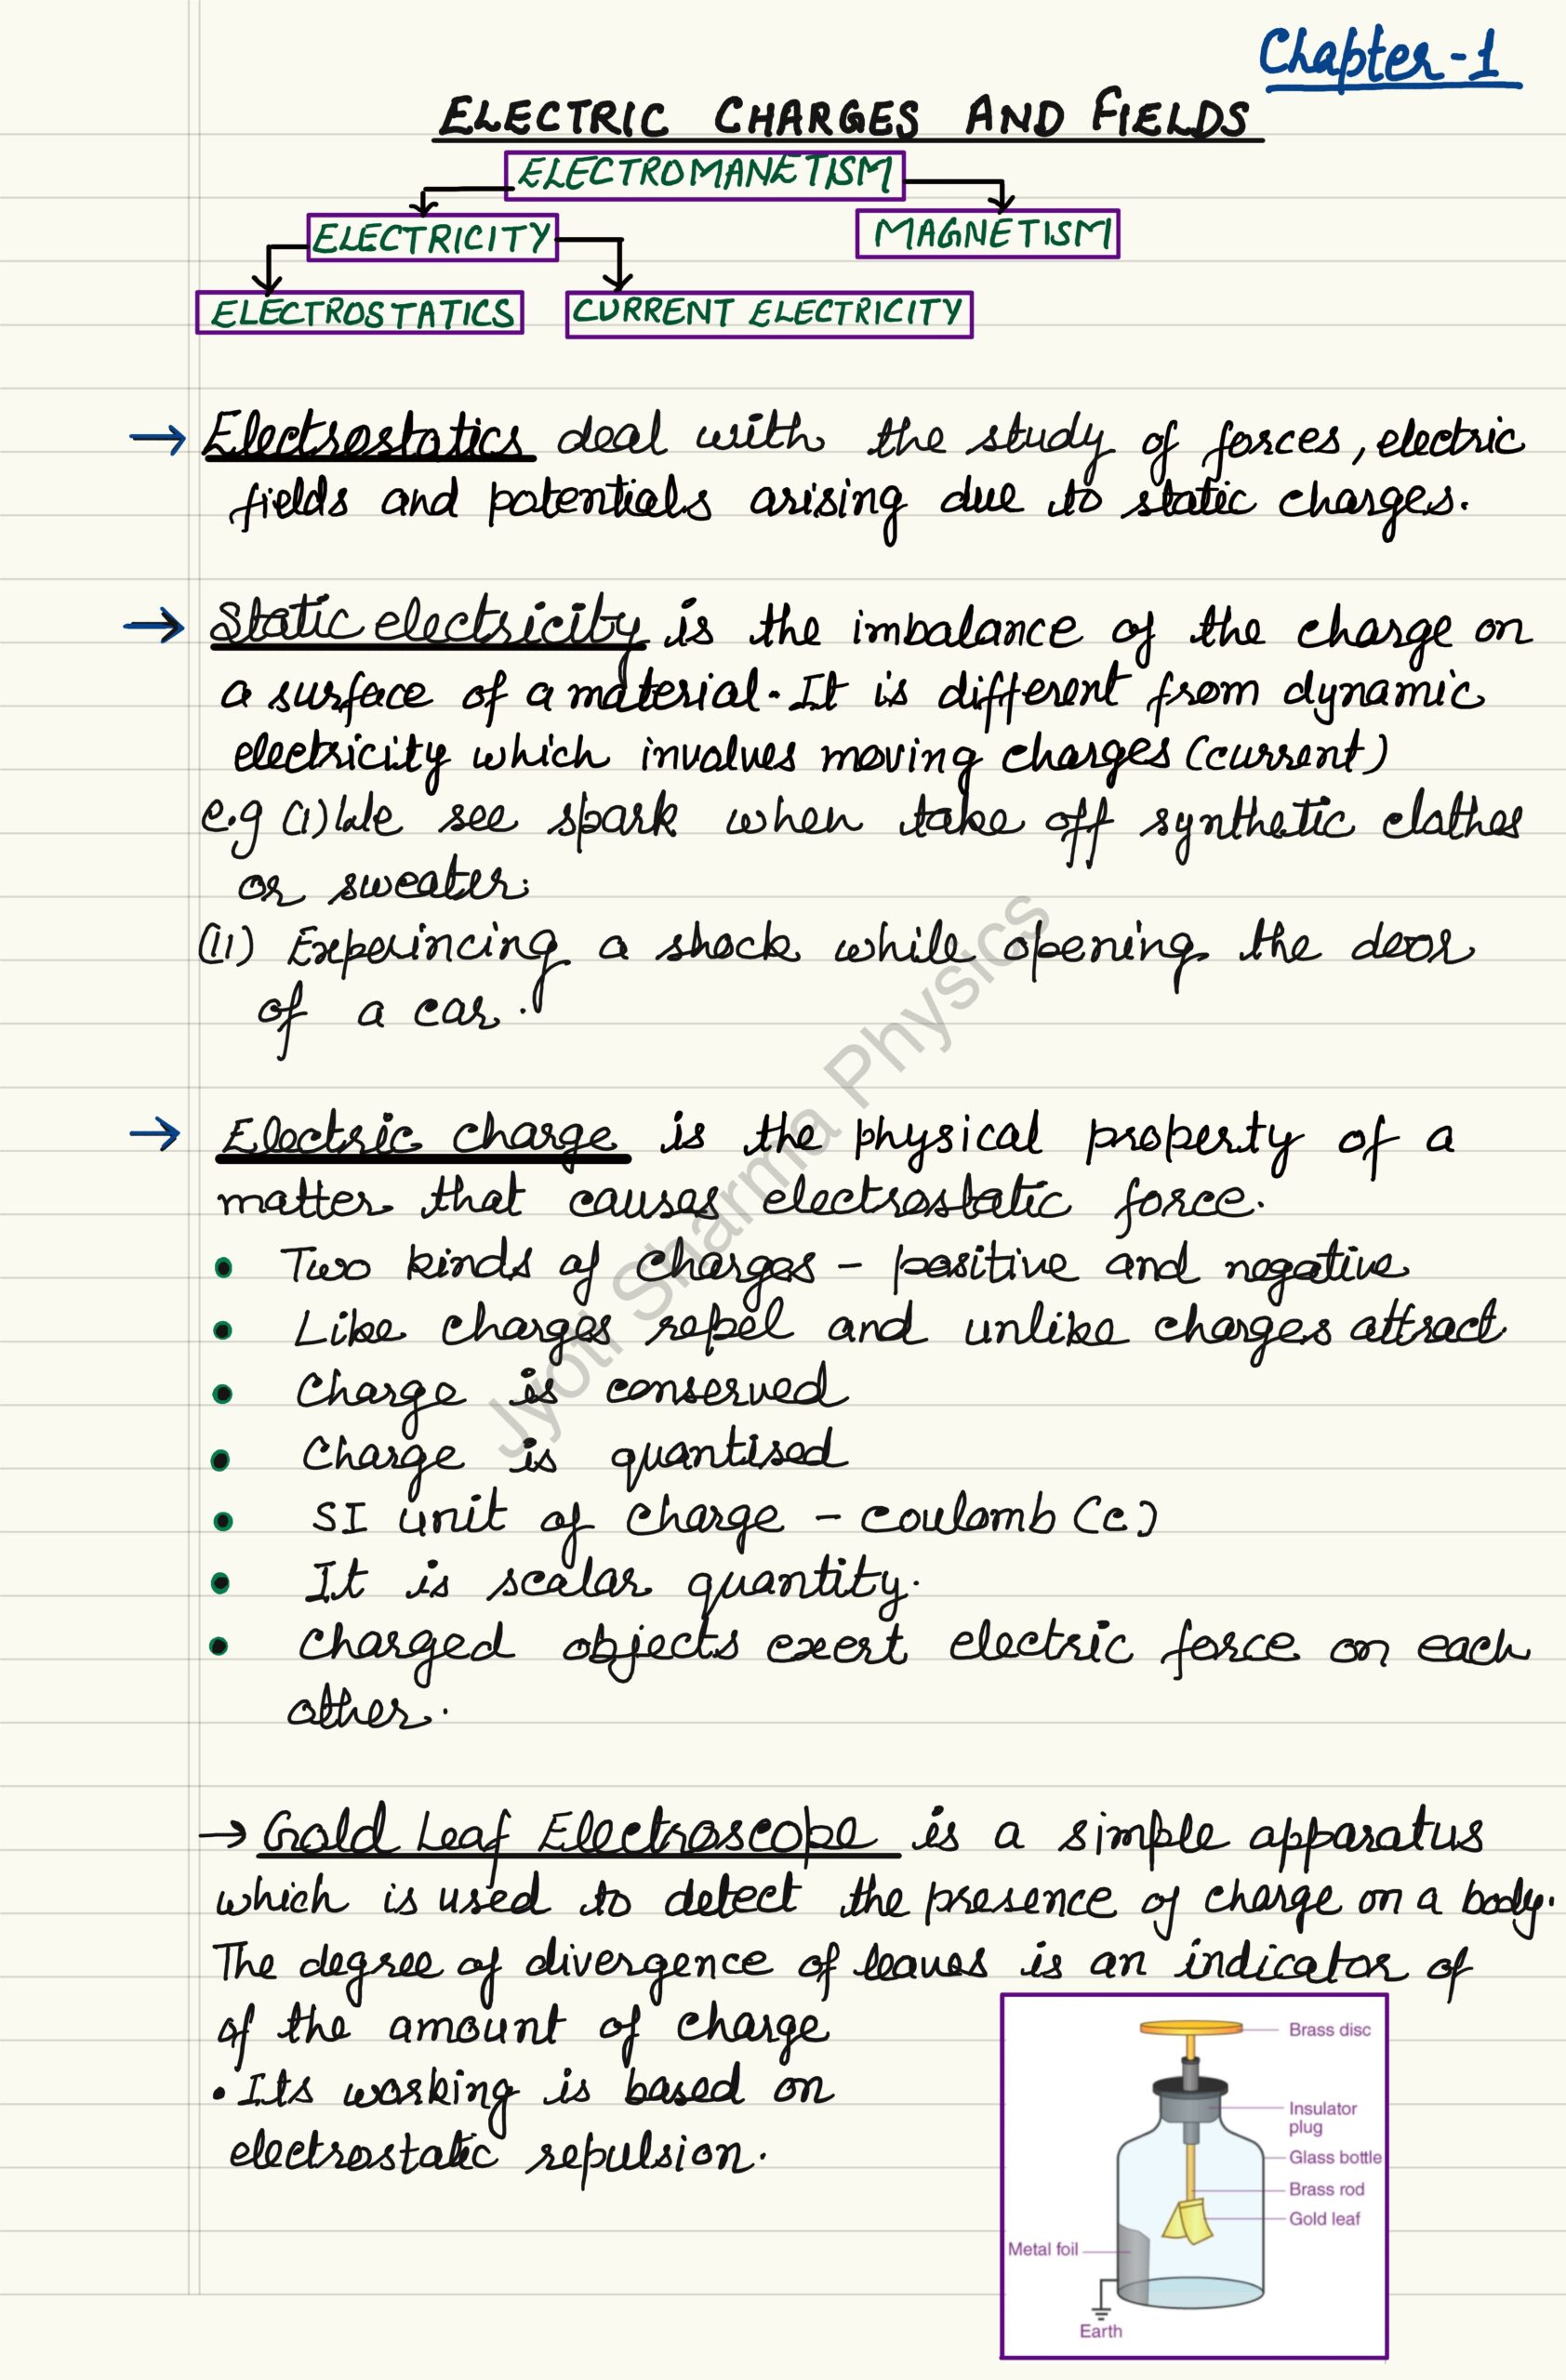 Chapter-1
ELECTRIC CHARGES AND FIELDS
ELECTROMANETISM
ELECTRICITY
MAGNETISM
ELECTROSTATICS
CURRENT ELECTRICITY
→ Electrostatics deal with the study of forces, electric
fields and potentials arising due to static charges.
→ Static electricity is the imbalance of the charge on
a surface of a material. It is different from dynamic
electricity which involves moving charges (current)
e.g (i) We see spark when take off synthetic clothes
or sweater.
(ii) Experincing a shock while opening the door
of a car.
→ Electric charge is the physical property of a
matter that causes electrostatic force.
• Two kinds of charges - positive and negative
• Like charges repel and unlike charges attract
• Charge is conserved
• Charge is quantised
• SI unit of charge - coulomb (c)
• It is scalar quantity.
• Charged objects exert electric force on each
other.
→ Gold Leaf Electroscope is a simple apparatus
which is used to detect the presence of charge on a body.
The degree of divergence of leaves is an indicator of
of the amount of charge
• Its working is based on
electrostatic repulsion.
Brass disc
Insulator
plug
Glass bottle
Brass rod
Gold leaf
Metal foil
Earth
Jyoti Sharma Physics